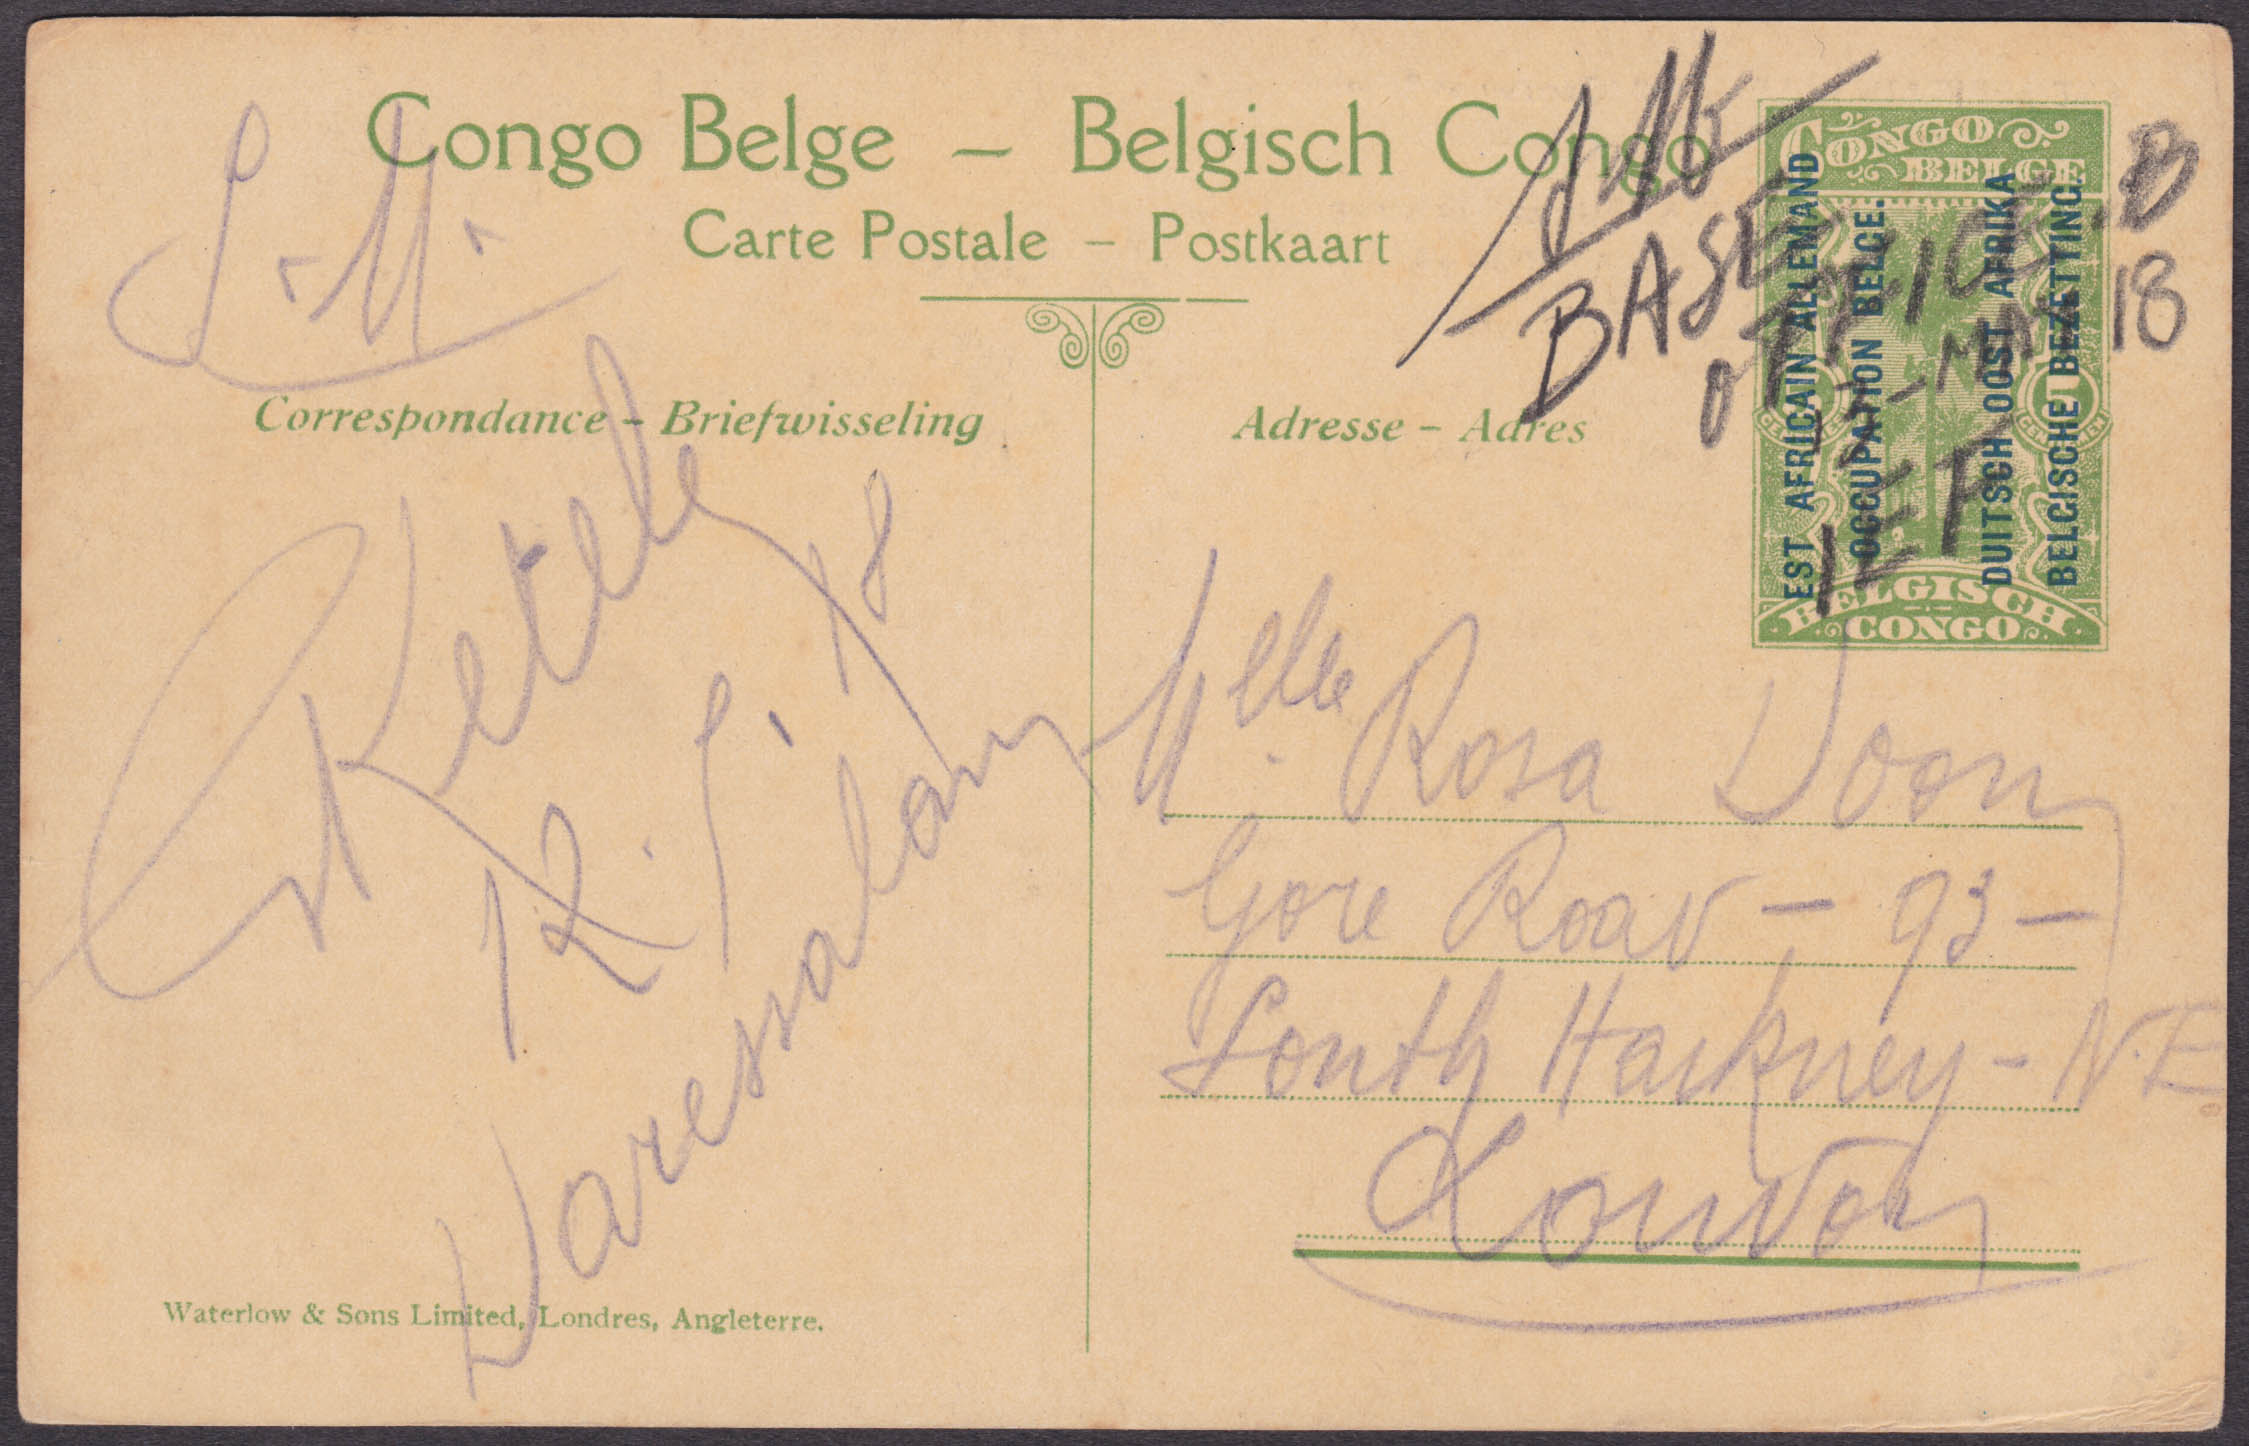 Congo Belge – Belgisch Congo
Carte Postale – Postkaart
S.M.
BASE
OFFICE.B
MAY 18
IEF
CONGO
BELGE
EST AFRICAIN ALLEMAND
OCCUPATION BELGE.
DUITSCH OOST AFRIKA
BELGISCHE BEZETTING.
BELGISCH
CONGO
Correspondance – Briefwisseling
Adresse – Adres
12.5.18
Daressalam
Melle Rosa Doon
Gore Road – 93 –
South Hackney – N.E
London
Waterlow & Sons Limited, Londres, Angleterre.